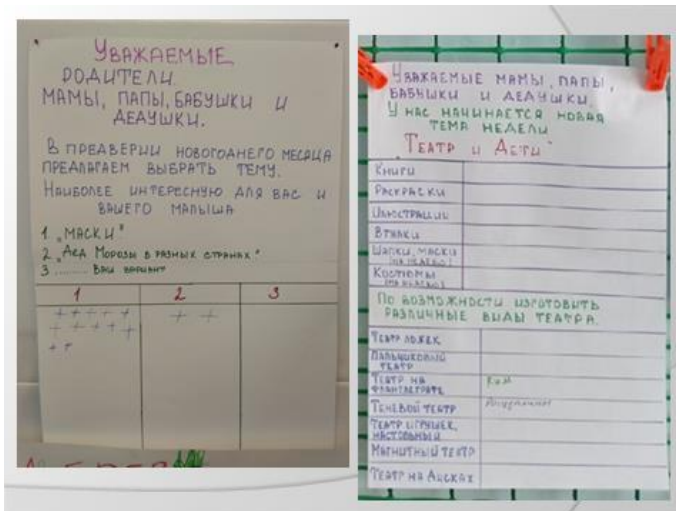 Уважаемые
родители.
мамы, папы, бабушки и
дедушки.
В предверии новогоднего месяца
предлагаем выбрать тему.
Наиболее интересную для вас и
вашего малыша
1 „Маски"
2 „Дед Морозы в разных странах"
3 ........ Ваш вариант
1 2 3
+ + + + + + +
+ + + + +
+ +
Уважаемые мамы, папы,
бабушки и дедушки.
У нас начинается новая
тема недели
„Театр и Дети"
Книги
Раскраски
Илюстрации
Шапки, маски
(на неделю)
Костюмы
(на неделю)
По возможности изготовить
различные виды театра.
Театр ложек
Пальчиковый
театр
Театр на
фланелеграфе
Теневой театр
Театр игрушек,
настольный
Магнитный театр
Театр на дисках